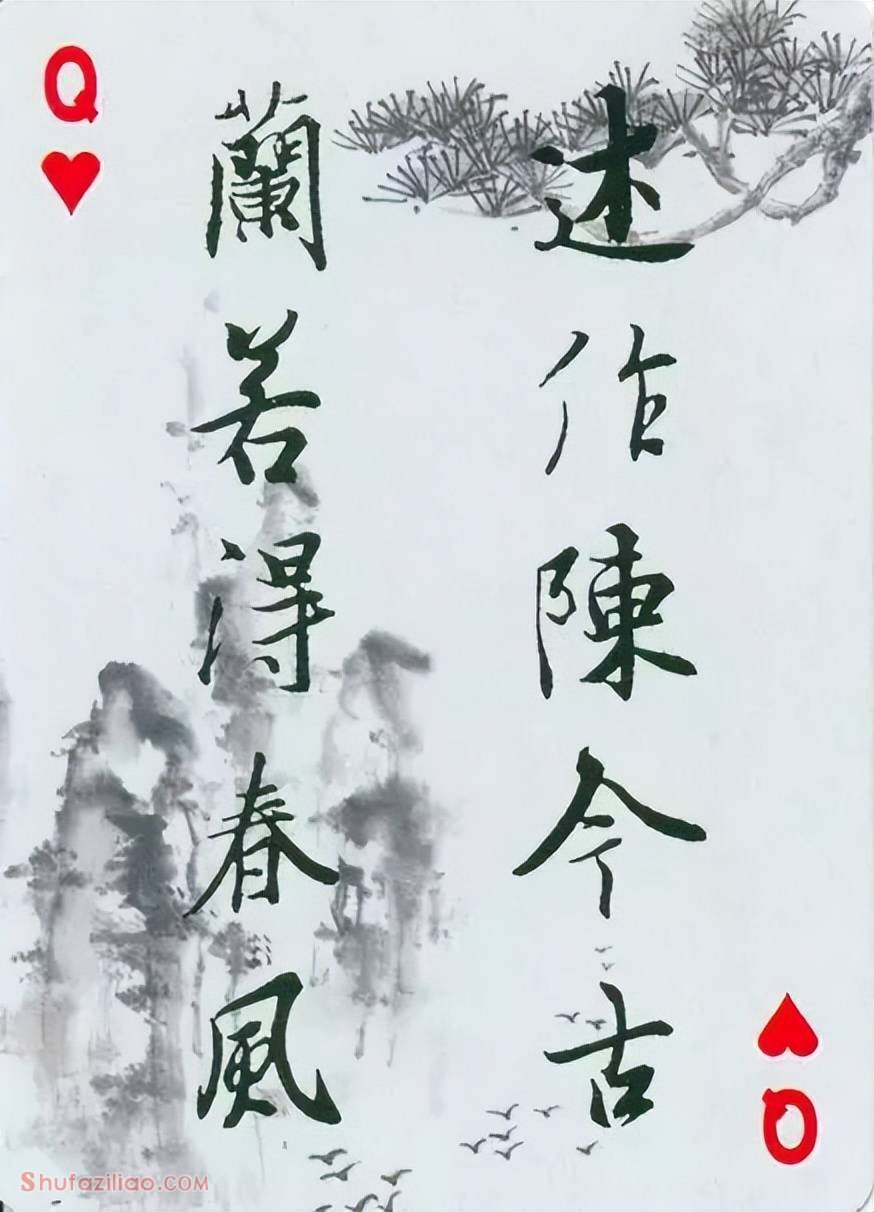 Q
述作陳今古
蘭若得春風
Q
Shufaziliao.com